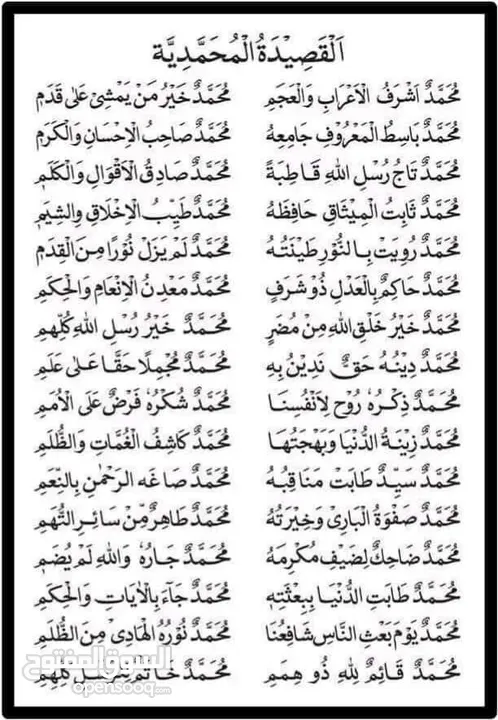 اَلْقَصِيْدَةُ الْمُحَمَّدِيَّة
مُحَمَّدٌ اَشْرَفُ الْاَعْرَابِ وَالْعَجَمِ مُحَمَّدٌ خَيْرُ مَنْ يَمْشِيْ عَلٰى قَدَمِ
مُحَمَّدٌ بَاسِطُ الْمَعْرُوْفِ جَامِعِهُ مُحَمَّدٌ صَاحِبُ الْاِحْسَانِ وَالْكَرَمِ
مُحَمَّدٌ تَاجُ رُسْلِ اللهِ قَاطِبَةً مُحَمَّدٌ صَادِقُ الْاَقْوَالِ وَالْكَلَمِ
مُحَمَّدٌ ثَابِتُ الْمِيْثَاقِ حَافِظُهُ مُحَمَّدٌ طَيِّبُ الْاِخْلَاقِ وَالشِّيَمِ
مُحَمَّدٌ رُوِيَتْ بِالنُّوْرِ طِيْنَتُهُ مُحَمَّدٌ لَمْ يَزَلْ نُوْرًا مِنَ الْقِدَمِ
مُحَمَّدٌ حَاكِمٌ بِالْعَدْلِ ذُوْ شَرَفٍ مُحَمَّدٌ مَعْدِنُ الْاِنْعَامِ وَالْحِكَمِ
مُحَمَّدٌ خَيْرُ خَلْقِ اللهِ مِنْ مُضَرٍ مُحَمَّدٌ خَيْرُ رُسْلِ اللهِ كُلِّهِمِ
مُحَمَّدٌ دِيْنُهُ حَقٌّ نَدِيْنُ بِهِ مُحَمَّدٌ مُجْمِلًا حَقًّا عَلٰى عَلَمِ
مُحَمَّدٌ ذِكْرُهُ رُوْحٌ لِاَنْفُسِنَا مُحَمَّدٌ شُكْرُهُ فَرْضٌ عَلَى الْاُمَمِ
مُحَمَّدٌ زِيْنَةُ الدُّنْيَا وَبَهْجَتُهَا مُحَمَّدٌ كَاشِفُ الْغُمَّاتِ وَالظُّلَمِ
مُحَمَّدٌ سَيِّدٌ طَابَتْ مَنَاقِبُهُ مُحَمَّدٌ صَاغَهُ الرَحْمٰنِ بِالنِّعَمِ
مُحَمَّدٌ صَفْوَةُ الْبَارِيْ وَخِيْرَتُهُ مُحَمَّدٌ طَاهِرٌ مِّنْ سَائِرِ التُّهَمِ
مُحَمَّدٌ ضَاحِكٌ لِضَيْفِ مُكْرِمَهُ مُحَمَّدٌ جَارُهُ وَاللهِ لَمْ يُضَمِ
مُحَمَّدٌ طَابَتِ الدُّنْيَا بِبِعْثَتِهِ مُحَمَّدٌ جَآءَ بِالْاٰيَاتِ وَالْحِكَمِ
مُحَمَّدٌ يَوْمَ بَعْثِ النَّاسِ شَافِعُنَا مُحَمَّدٌ نُوْرُهُ الْهَادِيْ مِنَ الظُّلَمِ
مُحَمَّدٌ قَائِمٌ لِلهِ ذُوْ هِمَمِ مُحَمَّدٌ خَاتَمٌ رُسْلِ كُلِّهِمِ
السوق المفتوح
opensooq.com